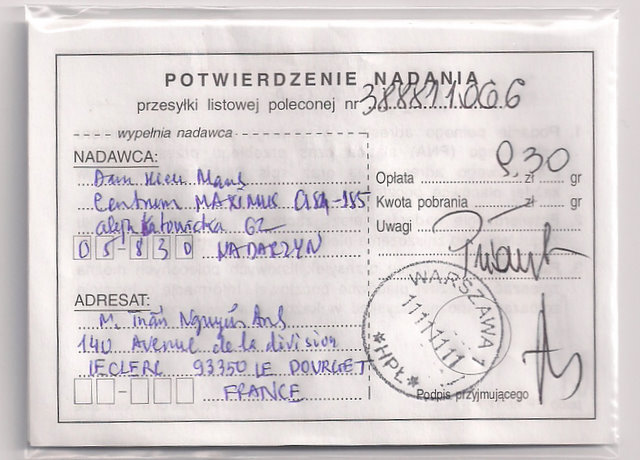 POTWIERDZENIE NADANIA
przesyłki listowej poleconej nr 388811.066
wypełnia nadawca
NADAWCA:
Centrum MAXIMUS
aleja Katowicka 62
05-830 NADARZYN
ADRESAT:
M. Trần Nguyên Anh
140 Avenue de la division
LECLERC 93350 LE BOURGET
FRANCE
Opłata 9,30 zł gr
Kwota pobrania zł gr
Uwagi
WARSZAWA 1
11111111
*HPŁ*
Podpis przyjmującego